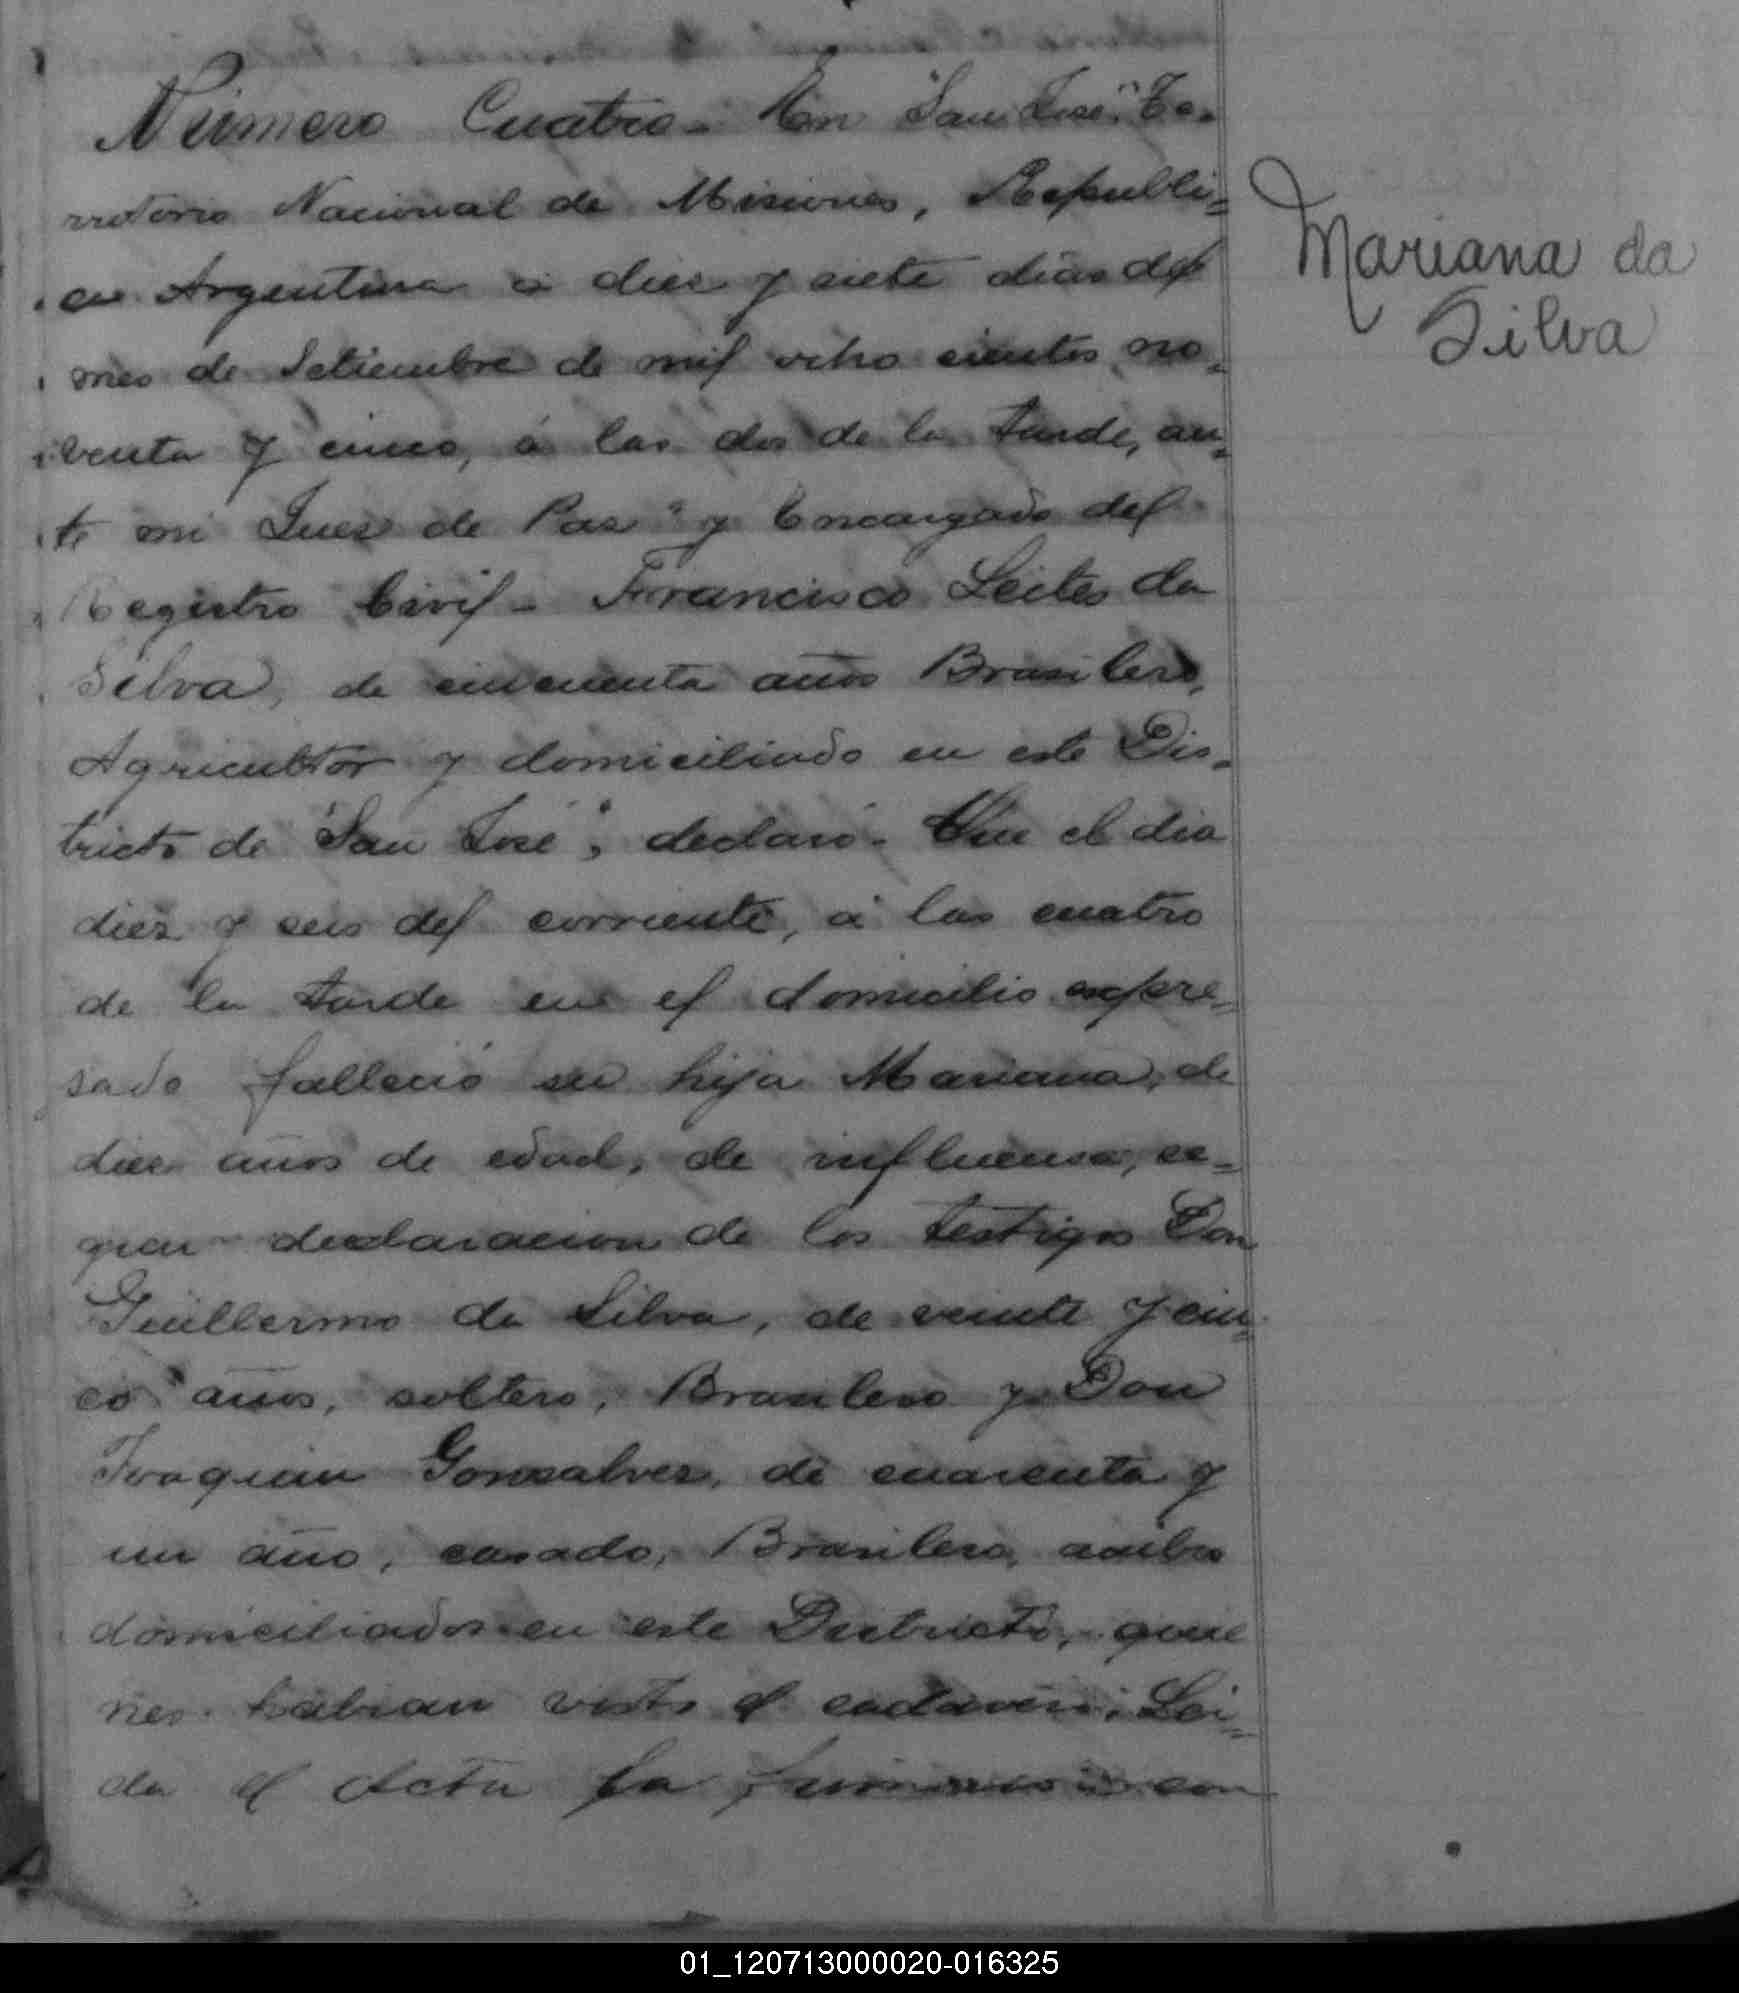 Número Cuatro. En "San José", Te-
rritorio Nacional de Misiones, Republi=
ca Argentina á diez y siete dias del
mes de Setiembre de mil ocho cientos no=
venta y cinco, á las dos de la tarde, an=
te mi Juez de Paz y Encargado del
Registro Civil - Francisco Leites da
Silva, de cincuenta años Brasilero,
Agricultor y domiciliado en este Dis=
tricto de "San José", declaró. Que el dia
diez y seis del corriente, á las cuatro
de la tarde en el domicilio espre=
sado falleció su hija Mariana, de
diez años de edad, de influensa, se=
gun declaracion de los testigos Don
Guillermo da Silva, de veinte y cin=
co años, soltero, Brasilero y Don
Joaquin Gonsalvez, de cuarenta y
un año, casado, Brasilero, ambos
domiciliados en este Districto, quie
nes habian visto el cadaver; Lei=
da el Acta la con
Mariana da
Silva
01_120713000020-016325